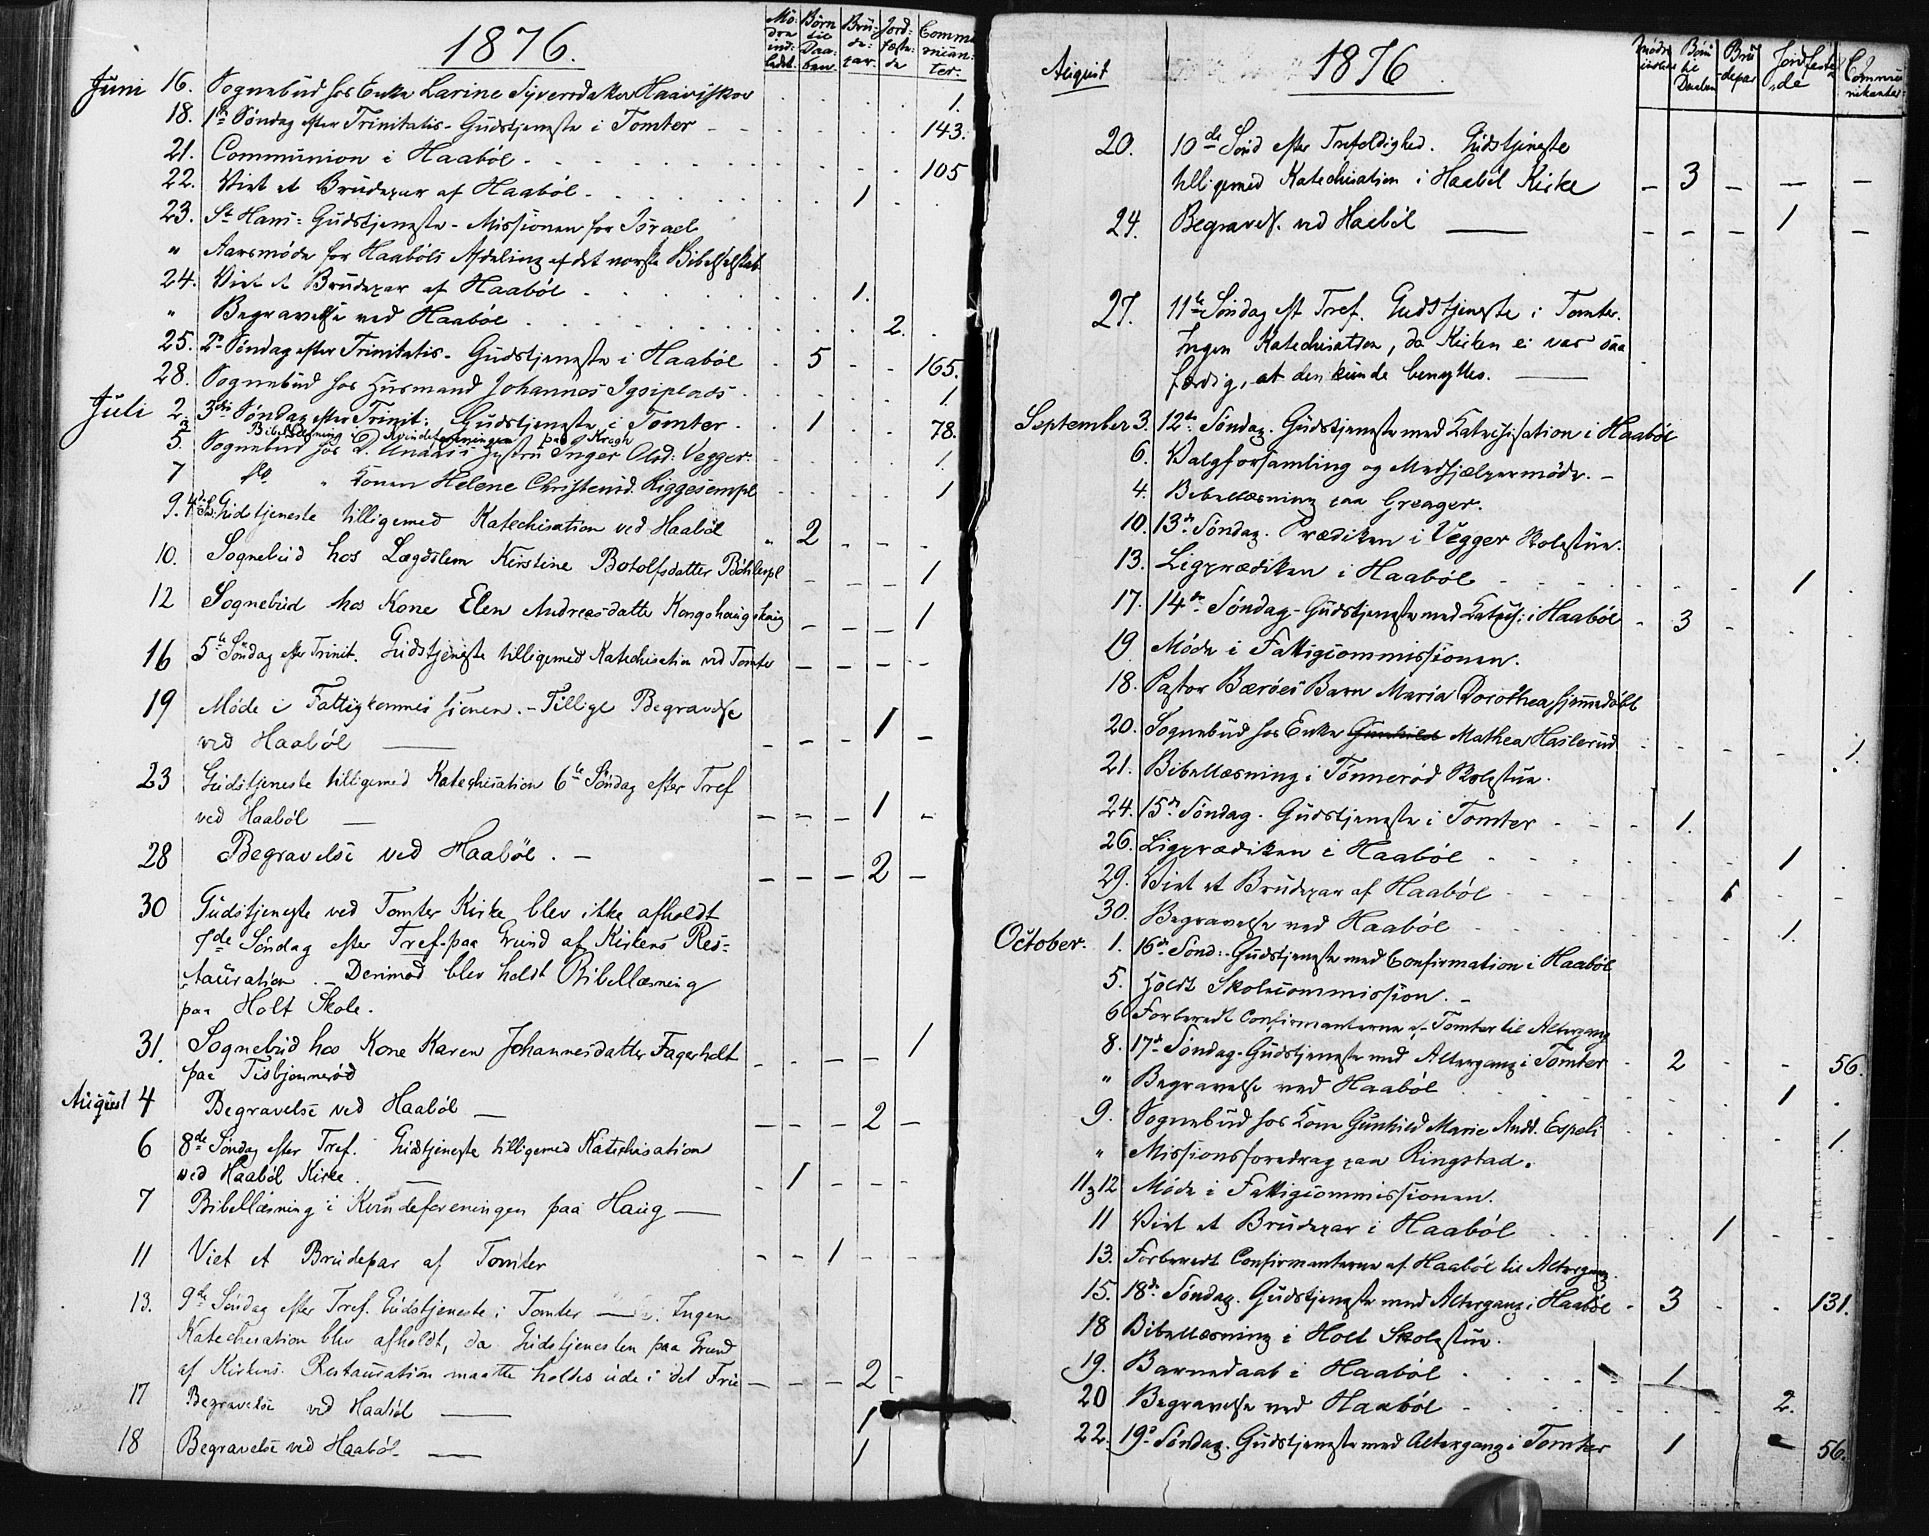 1876.
Mødre indledt. Børn til Daaben. Brudepar. Jordfæstede Communicanter.
Juni 16. Sognebud hos Enke Larine Syversdatter Haavi 1.
18. 1ste Søndag efter Trinitatis - Gudstjeneste i Tomter 143.
21. Communion i Haabøl 105
22. Viet et Brudepar af Haabøl 1
23. St Hans: Gudstjeneste - Missionen for Israel
" Aarsmøde for Haabøls Afdeling af det norske Bibelselskab
24. Viet et Brudepar af Haabøl 1.
" Begravelse ved Haabøl 2.
25. 2de Søndag efter Trinitatis - Gudstjeneste i Haabøl 5 - - 165.
28. Sognebud hos Husmand Johannes 1
Juli 2. 3die Søndag efter Trinit: Gudstjeneste i Tomter 1 78.
3 Bibellæsning i Kvindeforeningen paa Kragh
5. Sognebud hos Hustru Inger Olsd: Vegger 1.
7 do " Konen Helene Christensd. 1
9. 4de S. Gudstjeneste tilligemed Katechisation ved Haabøl " 2 - - -
10. Sognebud hos Lægdslem Kirstine Botolfsdatter - - - 1
12 Sognebud hos Kone Elen Andreasdatter - - - 1
16 5te Søndag efter Trinit. Gudstjeneste tilligemed Katechisation ved Tomter - - - - -
19 Møde i Fattigkommissionen. - Tillige Begravelse
ved Haabøl - - - 1 -
23 Gudstjeneste tilligemed Katechisation 6te Søndag efter Tref
ved Haabøl - - - 1 -
28 Begravelse ved Haabøl. - - - - 2 -
30 Gudstjeneste ved Tomter Kirke blev ikke afholdt
7de Søndag efter Tref. paa Grund af Kirkens Res-
tauration. - Derimod blev holdt Bibellæsning
paa Holt Skole.
31. Sognebud hos Kone Karen Johannesdatter Fagerholt - - - - 1
paa Tisbjønnerød
August 4 Begravelse ved Haabøl - - - - 2 -
6 8de Søndag efter Tref. Gudstjeneste tilligemed Katechisation
ved Haabøl Kirke. - 1 - - -
7 Bibellæsning i Kvindeforeningen paa Haug -
11 Viet et Brudepar af Tomter - - 1 - -
13. 9de Søndag efter Tref. Gudstjeneste i Tomter - Ingen
Katechisation blev afholdt, da Gudstjenesten paa Grund
af Kirkens Restauration maatte holdes ude i det Frie - - - 2 -
17 Begravelse ved Haabøl 1
18 Begravelse ved Haabøl 1
August 1876
Mødre indledte Børn til Daaben Brudepar Jordfæstede Communikanter
20. 10de Sønd efter Trefoldighed. Gudstjeneste
tilligemed Katechisation i Haabøl Kirke - 3 - - -
24. Begravels. ved Haabøl - - - 1 -
27. 11te Søndag eft Tref. Gudstjeneste i Tomter.
Ingen Katechisation, da Kirken ei var saa
færdig, at den kunde benyttes.
September 3. 12te Søndag. Gudstjeneste med Katechisation i Haabøl
6. Valgforsamling og Medhjælpermøde. -
4. Bibellæsning paa Greager.
10. 13de Søndag. Prædiken i Vegger Skolestue.
13. Ligprædiken i Haabøl 1
17. 14de Søndag - Gudstjeneste med Katech: i Haabøl 3
19 Møde i Fattigcommissionen.
18. Pastor Barn Maria Dorothea hjemmedøbt
20. Sognebud hos Enke Gunhild Mathea Haslerud 1.
21. Bibellæsning i Tønnerød Skolestue.
24. 15de Søndag. Gudstjeneste i Tomter 1.
26. Ligprædiken i Haabøl 1
29. Viet et Brudepar af Haabøl 1
30. Begravelse ved Haabøl 1.
October. 1. 16de Sønd: - Gudstjeneste med Confirmation i Haabøl
5. Holdt Skolecommission. -
6 Forberedt Confirmanterne af Tomter til Altergang
8. 17de Søndag - Gudstjeneste med Altergang i Tomter 2 - - 56.
" Begravelse ved Haabøl 1
9. Sognebud hos Kone Gunhild Marie Andd. Espeli 1.
" Missionsforedrag paa Ringstad.
11 & 12 Møde i Fattigcommissionen.
11 Viet et Brudepar i Haabøl 1
13. Forberedt Confirmanterne af Haabøl til Altergang.
15. 18de Søndag. Gudstjeneste med Altergang i Haabøl 3 131.
18 Bibellæsning i Holt Skolestue.
19. Barnedaab i Haabøl 1
20 Begravelse ved Haabøl 2.
22. 19de Søndag. Gudstjeneste med Altergang i Tomter 1 56.